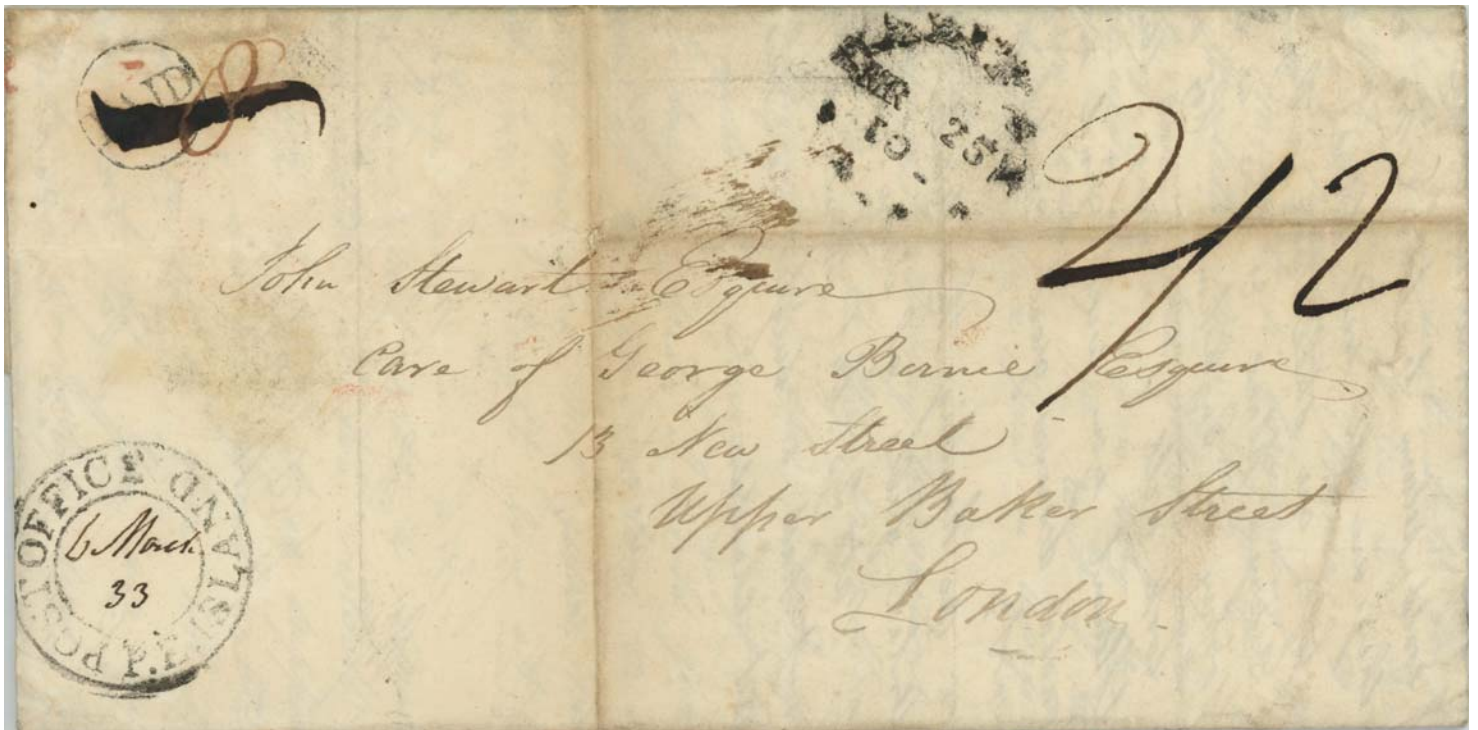 PAID 8
HALIFAX
MR 25
2/2
John Stewart Esquire
Care of George Birnie Esquire
13 New Street
Upper Baker Street
London
POST OFFICE P.E. ISLAND
6 March
33